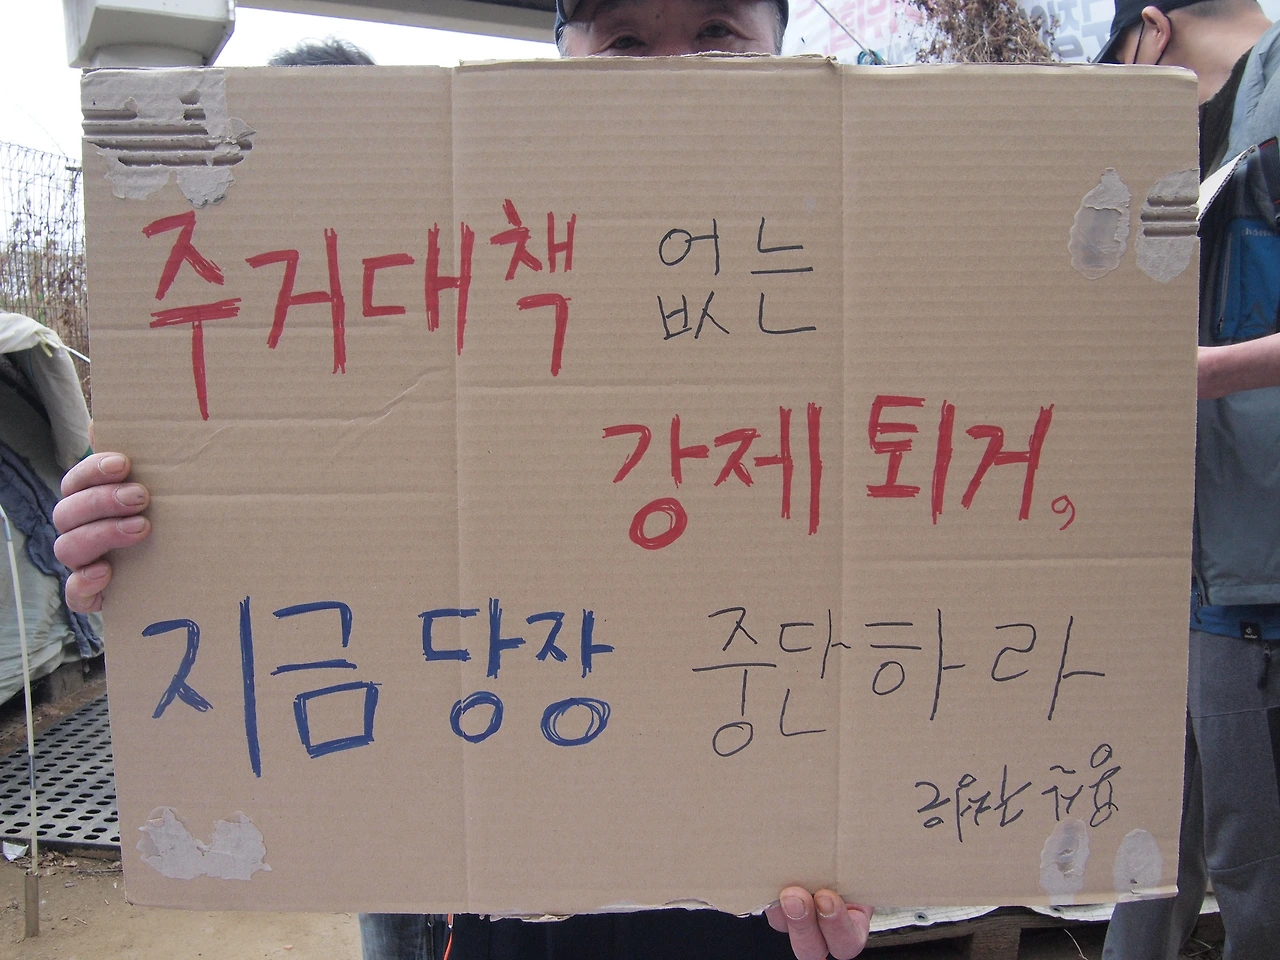 주거대책 없는
강제 퇴거,
지금 당장 중단하라